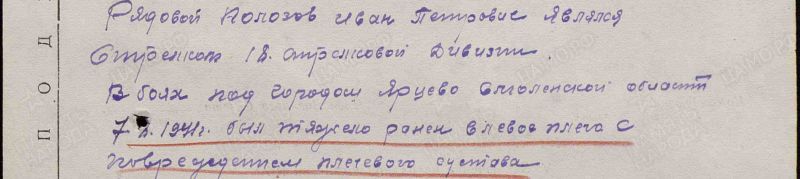 ПОД
Рядовой Полозов Иван Петрович являлся
Стрелком 18. стрелковой Дивизии.
В боях под городом Ярцево Смоленской области
7. 1941г. был тяжело ранен в левое плечо с
повреждением плечевого сустава